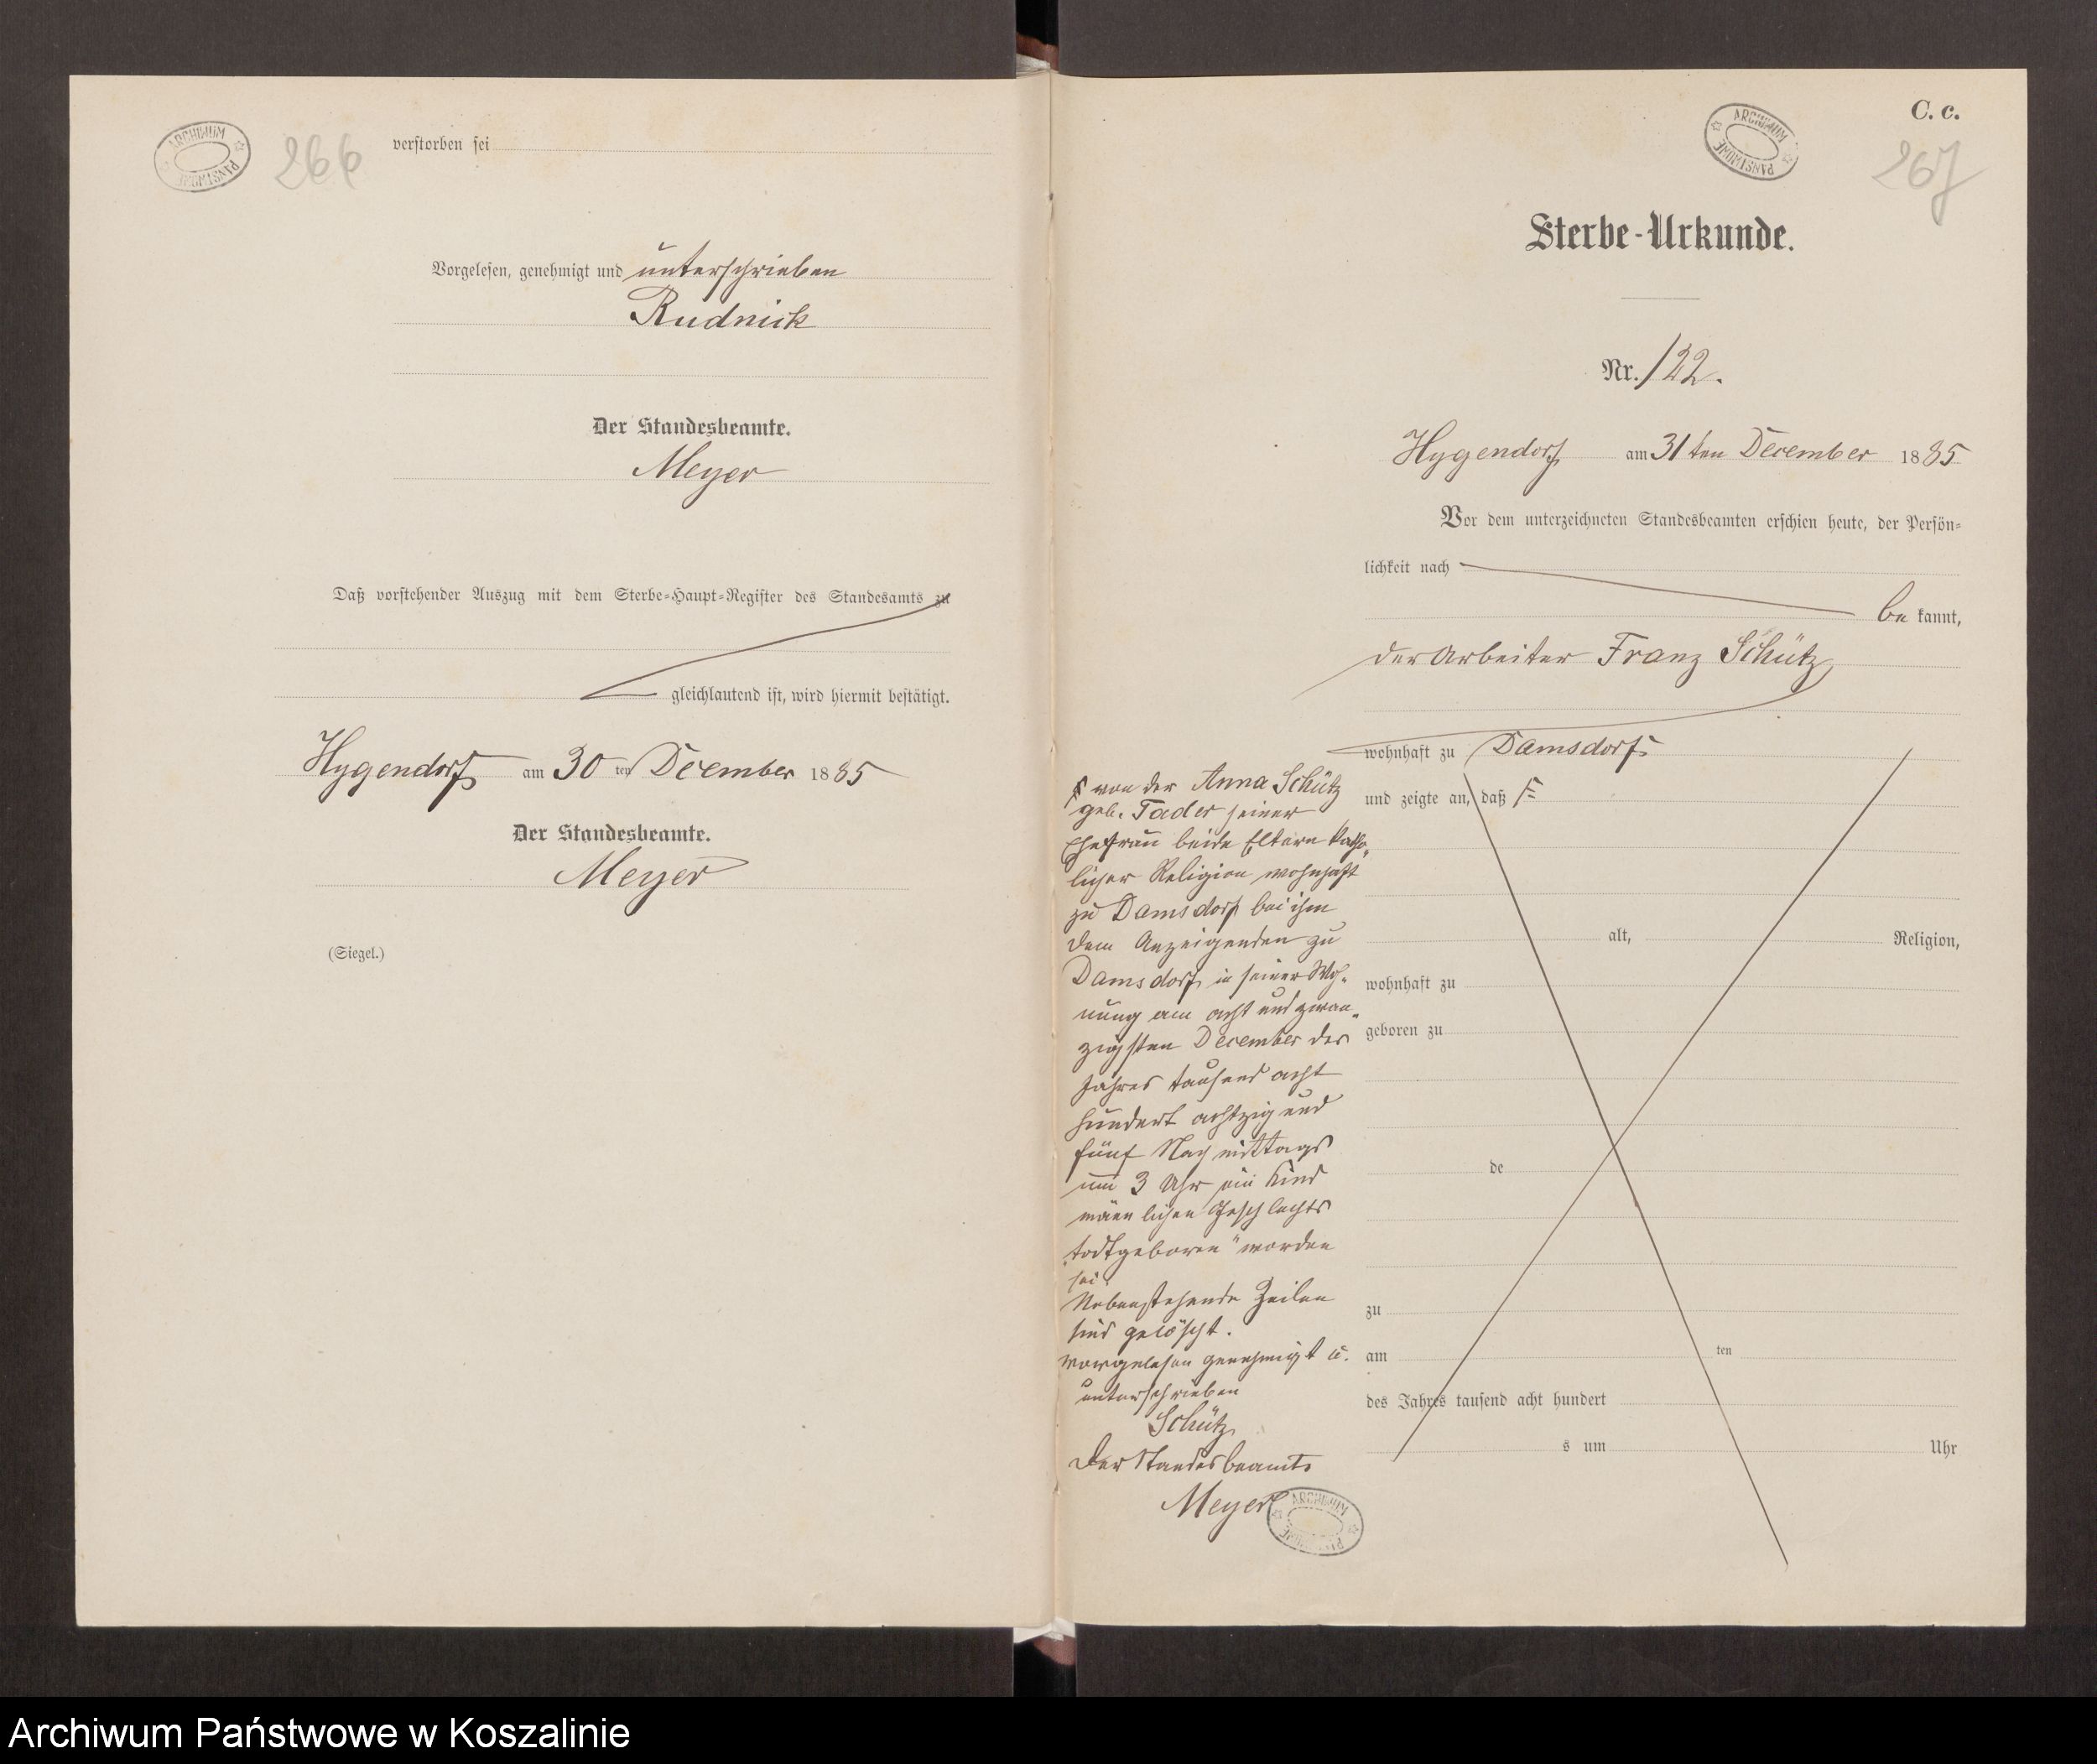 ARCHIWUM PAŃSTWOWE
266
verstorben sei
Vorgelesen, genehmigt und unterschrieben
Rudnick
Der Standesbeamte.
Meyer
Daß vorstehender Auszug mit dem Sterbe-Haupt-Register des Standesamts zu
gleichlautend ist, wird hiermit bestätigt.
Hygendorf am 30 ten December 1885
Der Standesbeamte.
Meyer
(Siegel.)
C. c.
ARCHIWUM PAŃSTWOWE
267
Sterbe-Urkunde.
Nr. 122.
Hygendorf am 31 ten December 1885
Vor dem unterzeichneten Standesbeamten erschien heute, der Persön-
lichkeit nach
be kannt,
der Arbeiter Franz Schütz,
wohnhaft zu Damsdorf
und zeigte an, daß F
alt, Religion,
wohnhaft zu
geboren zu
de
zu
am ten
des Jahres tausend acht hundert
s um Uhr
F von der Anna Schütz
geb. Tader seiner
Ehefrau beide Eltern katho-
licher Religion wohnhaft
zu Damsdorf bei ihm
dem Anzeigenden zu
Damsdorf in seiner Woh-
nung am acht und zwan-
zigsten December des
Jahres tausend acht
hundert achtzig und
fünf Nachmittags
um 3 Uhr ein Kind
männlichen Geschlechts
"todtgeboren" worden
sei.
Nebenstehende Zeilen
sind gelöscht.
Vorgelesen genehmigt u.
unterschrieben
Schütz
Der Standesbeamte
Meyer
ARCHIWUM PAŃSTWOWE
Archiwum Państwowe w Koszalinie